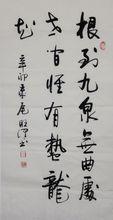 根到九泉無曲處
世间惟有蟄龍
知
辛卯
书